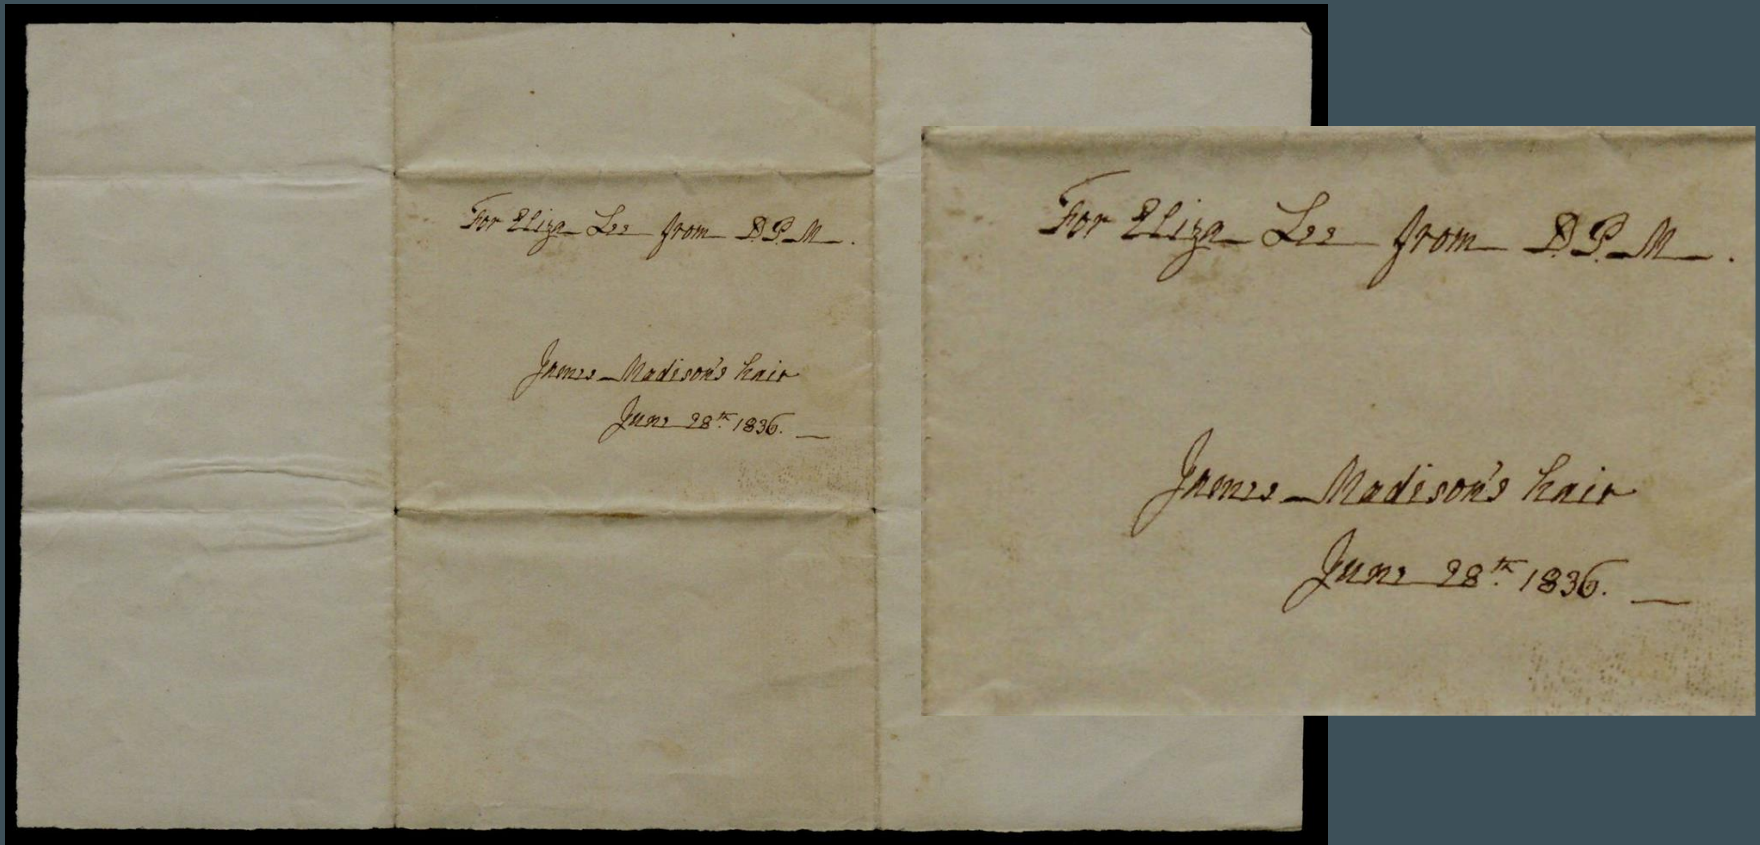 For Eliza Lee from D.P.M.
James Madison's hair
June 28th 1836.
For Eliza Lee from D.P.M.
James Madison's hair
June 28th 1836.